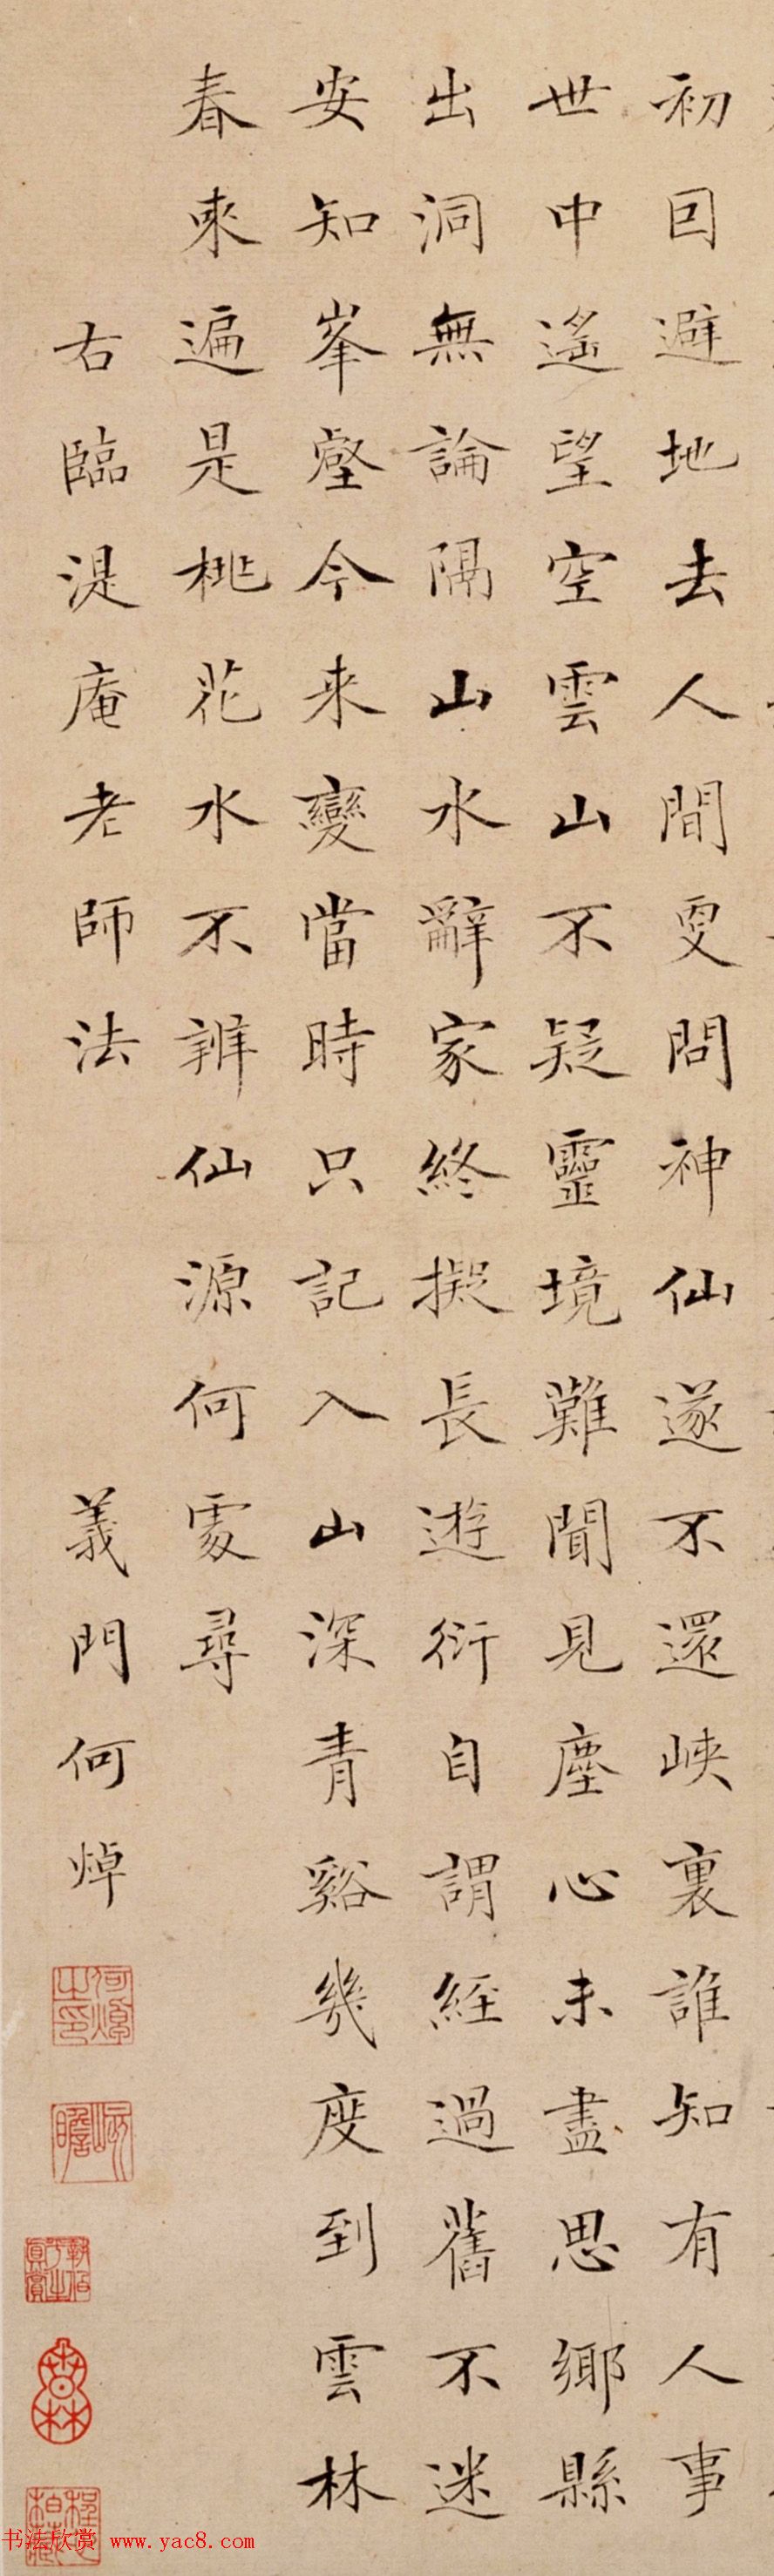 初回避地去人間更問神仙遂不還峽裏誰知有人事
世中遙望空雲山不疑靈境難聞見塵心未盡思鄉縣
出洞無論隔山水辭家終擬長遊衍自謂經過舊不迷
安知峯壑今来變當時只記入山深青谿幾度到雲林
春來遍是桃花水不辨仙源何處尋
右臨湜庵老師法
義門何焯
何焯之印
屺瞻
書法欣赏 www.yac8.com